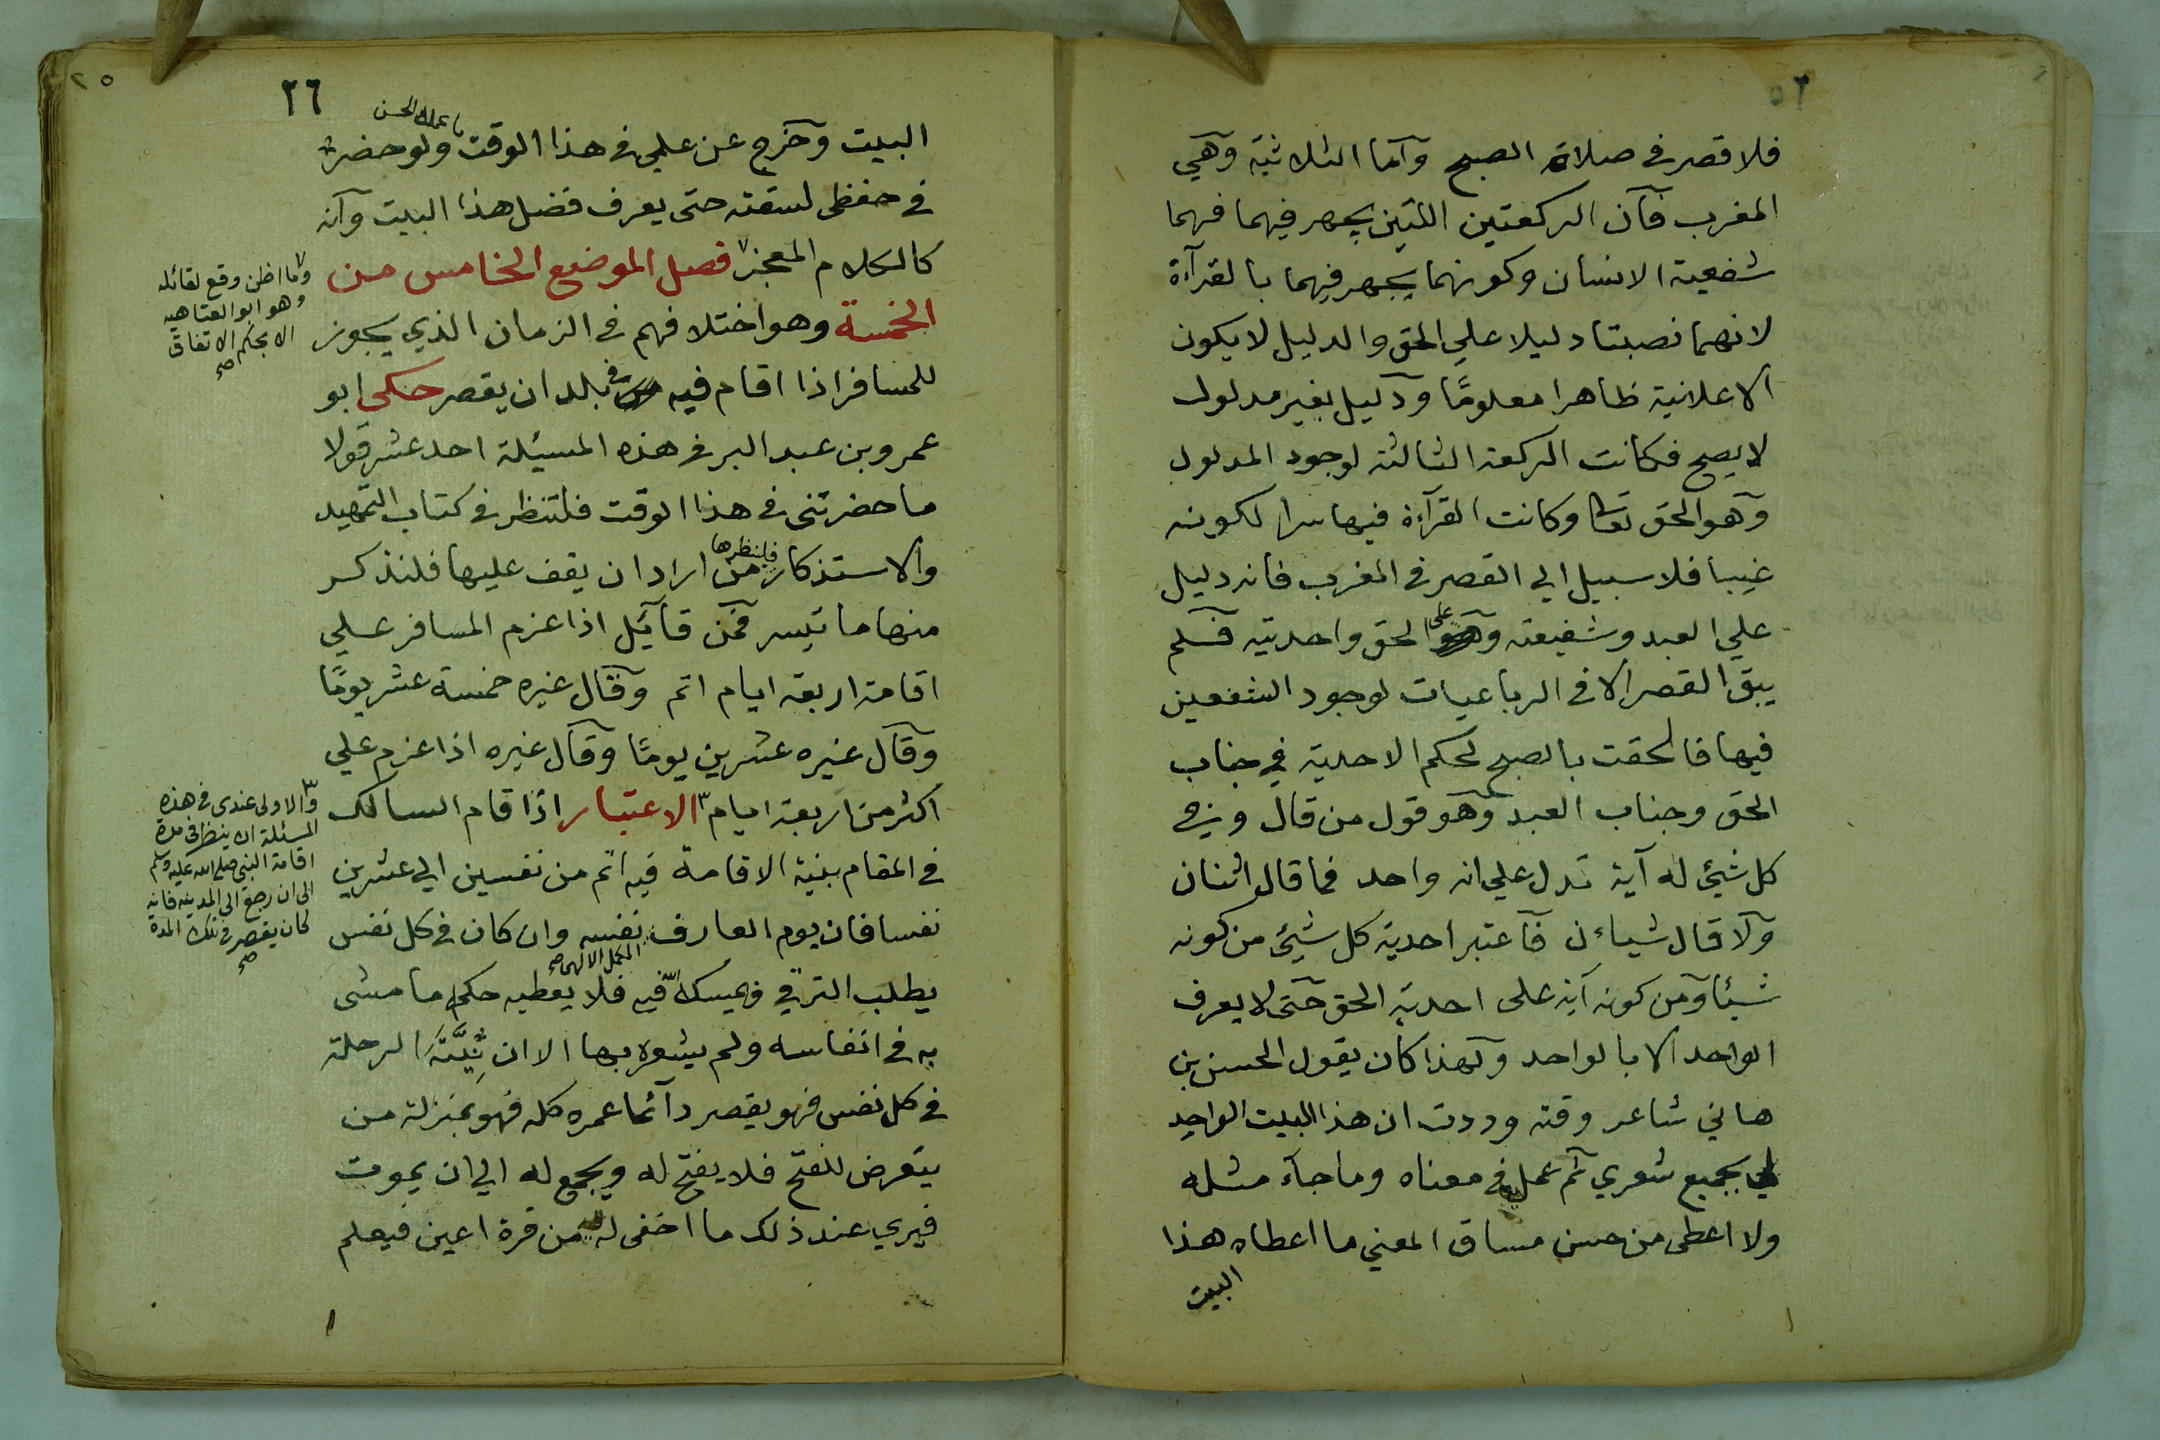 فلا قصر في صلاة الصبح وآما الثلاثية وهي
المغرب فآن الركعتين اللتين يجهر فيهما فهما
شفعية الانسان وكونهما يجهر فيهما بالقرآءة
لانهما نصبتا دليلا علي الحق والدليل لا يكون
الا علانية ظاهرا معلومًا ودليل بغير مدلول
لا يصح فكانت الركعة الثالثة لوجود المدلول
وهو الحق تعا وكانت القرآءة فيها سرا لكونه
غيبا فلا سبيل الي القصر في المغرب فانه دليل
علي العبد وشفيعته و على الحق واحديته فلم
يبق القصر الا في الرباعيات لوجود الشفعين
فيها فالحقت بالصبح لحكم الاحدية في جناب
الحق وجناب العبد وهو قول من قال وفي
كل شيئ له آية تدل علي انه واحد فما قال اثنان
ولا قال شياءن فآعتبر احدية كل شيئ من كونه
شيئا ومن كونه آية على احدية الحق حتى لا يعرف
الواحد الا بالواحد ولهذا كان يقول الحسن بن
هاني شاعر وقته وددت ان هذا البيت الواحد
لي بجميع شعري ثم عمل في معناه وما جآء مثله
ولا اعطى من حسن مساق المعني ما اعطاه هذا
البيت
٢٥
٢٦
ما عمله الحسن
البيت وخرج عن علمي في هذا الوقت ولو حضر
في حفظي لسقته حتى يعرف فضل هذا البيت وآنه
كالكلام المعجز فصل الموضع الخامس من
الخمسة وهو اختلافهم في الزمان الذي يجوز
للمسافر اذا اقام فيه في بلد ان يقصر حكى ابو
عمرو بن عبد البر في هذه المسيئلة احد عشر قولا
ما حضرتني في هذا الوقت فلتنظر في كتاب التمهيد
والاستذكار فلينظرها من اراد ان يقف عليها فلنذكر
منها ما تيسر فمن قآئل اذا عزم المسافر علي
اقامة اربعة ايام اتم وقال غيره خمسة عشر يومًا
وقال غيره عشرين يومًا وقال غيره اذا عزم علي
اكثر من اربعة ايام الاعتبار اذا قام السالك
في المقام بنية الاقامة فيه اتم من نفسين الي عشرين
نفسا فان يوم العارف نفسه وان كان في كل نفس
المحل الالهي صح
يطلب الترقي فيمسكه فيه فلا يعطيه حكم ما مشى
به في انفاسه ولم يشعر بها الا ان نِيَّتَه الرحلة
في كل نفس فهو يقصر دآئما عمره كله فهو بمنزلة من
يتعرض للفتح فلا يفتح له ويجمع له الي ان يموت
فيري عند ذلك ما اخفى له من قرة اعين فيعلم
وما اظن وقع لقائله
وهو ابو العتاهيه
الا بحكم الاتفاق
صح
والاولى عندي في هذه
المسئلة ان ينظر في مدة
اقامة النبي صلى الله عليه وسلم
الى ان رجع الى المدينه فانه
كان يقصر في تلك المدة
صح